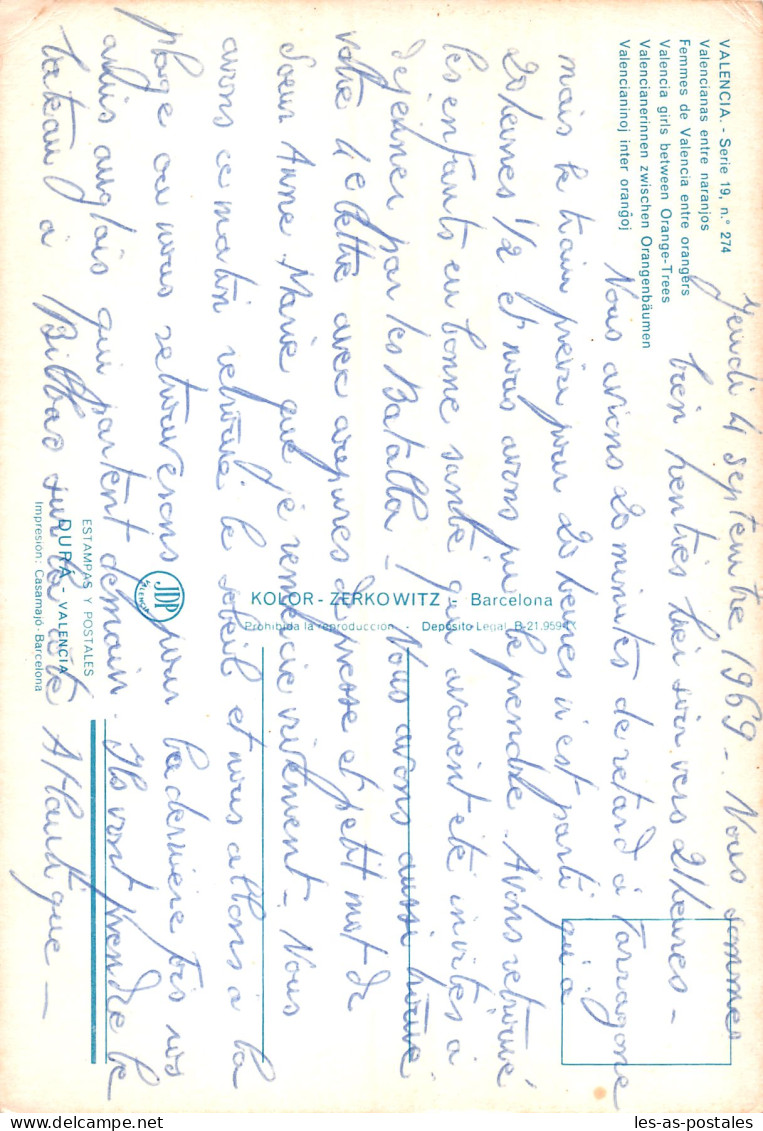 VALENCIA. - Serie 19, n.° 274
Valencianas entre naranjos
Femmes de Valencia entre orangers
Valencia girls between Orange-Trees
Valencianerinnen zwischen Orangenbäumen
Valencianinoj inter oranĝoj
Jeudi 4 septembre 1969 -. Nous sommes
bien rentrés hier soir vers 21 heures -
Nous avions 20 minutes de retard à Tarragone
mais le train prévu pour 20 heures n'est parti qu'à
20 heures 1/2 et nous avons pu le prendre. Avons retrouvé
les enfants en bonne santé qui avaient été invités à
déjeuner par les Batalla - Nous avons aussi trouvé
votre 4e lettre avec coupures de presse et petit mot de
Soeur Anne Marie que je remercie vivement - Nous
avons ce matin retrouvé le soleil et nous allons à la
plage où nous retrouverons pour la dernière fois nos
amis anglais qui partent demain. Ils vont prendre le
bateau à Bilbao sur la côte Atlantique -
KOLOR - ZERKOWITZ - Barcelona
Prohibida la reproducción - Depósito Legal B-21.959-IX
JDP
VALENCIA
ESTAMPAS Y POSTALES
DURÁ - VALENCIA
Impresión: Casamajó - Barcelona
les-as-postales